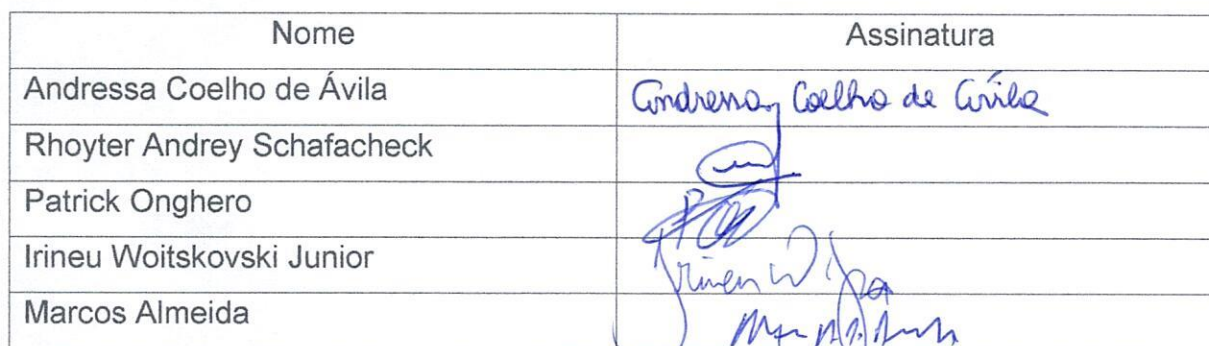 Nome Assinatura
Andressa Coelho de Ávila Andressa Coelho de Ávila
Rhoyter Andrey Schafacheck
Patrick Onghero
Irineu Woitskovski Junior Irineu W
Marcos Almeida